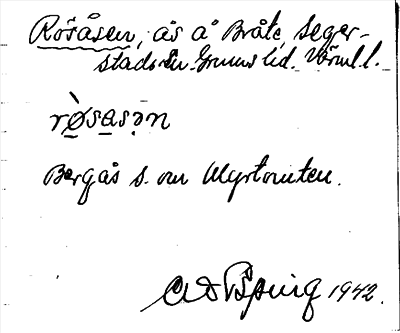 Rösåsen, ås å Bråte, Seger-
stads sn. Grums hd. Värml.
rø̀sasən
Bergås s. om Myrtomten.
1942.